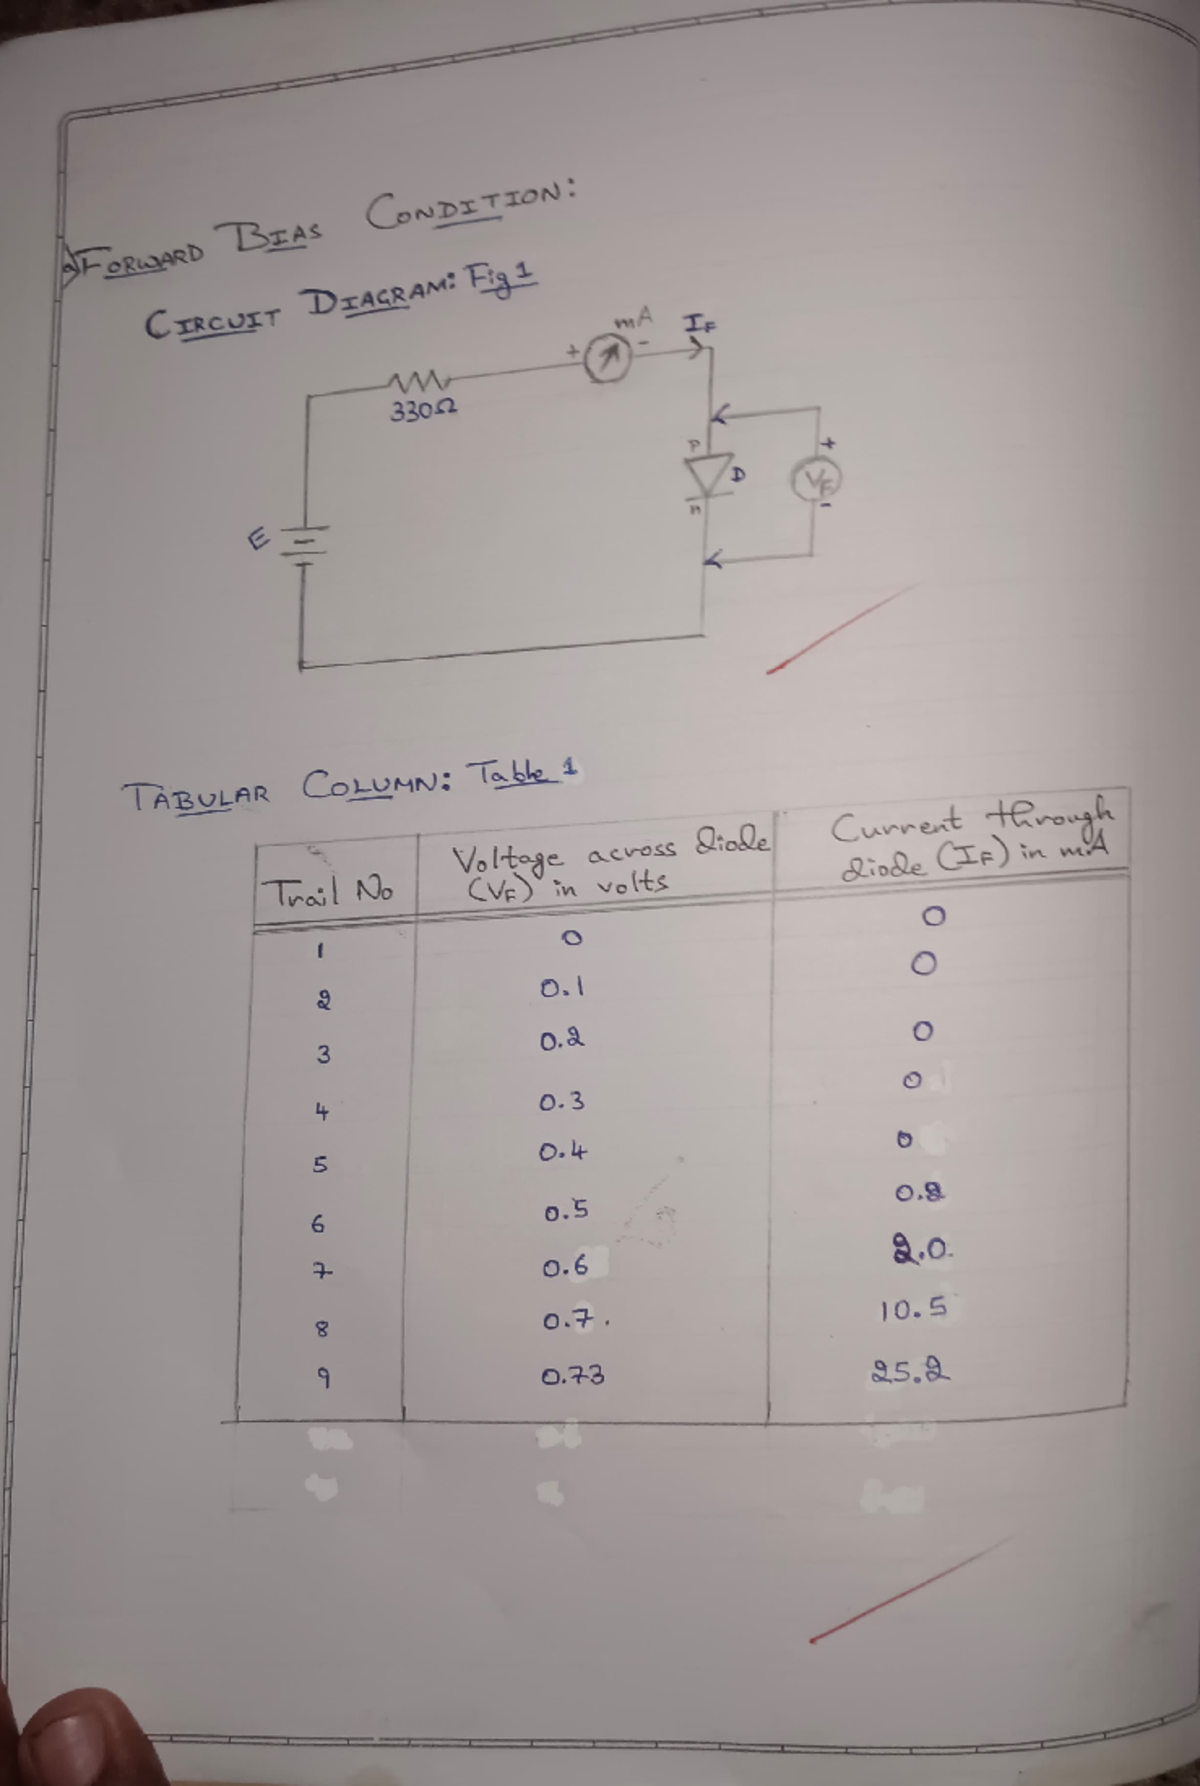 a) FORWARD BIAS CONDITION:
CIRCUIT DIAGRAM: Fig 1
mA IF
+ -
330Ω
P
D
n
+
VF
-
E
TABULAR COLUMN: Table 1
Trail No Voltage across diode (VF) in volts Current through diode (IF) in mA
1 0 0
2 0.1 0
3 0.2 0
4 0.3 0
5 0.4 0
6 0.5 0.2
7 0.6 2.0
8 0.7 10.5
9 0.73 25.2